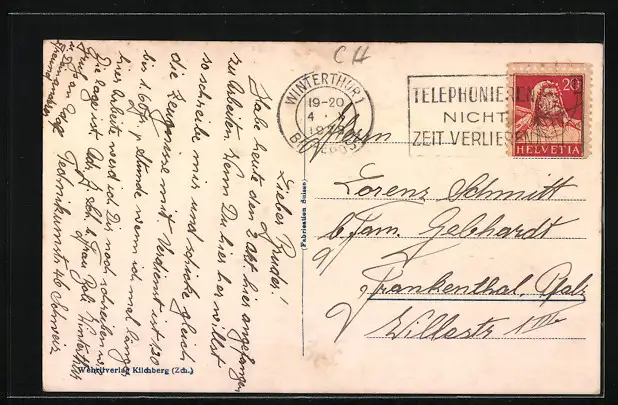 CH
WINTERTHUR 1
19-20
4
BRIEFVERS
TELEPHONIEREN
NICHT
ZEIT VERLIEREN
20
HELVETIA
Herrn
Lorenz Schmitt
b/Fam. Gebhardt
Frankenthal, Pfalz
Willestr
(Fabrication Suisse)
Lieber Bruder!
Habe heute den 2. Okt. hier angefangen
zu arbeiten. Wenn Du hier her willst
so schreibe mir und schicke gleich
die Zeugnisse mit Verdienst ist 1.20
bis 1.60 fr p Stunde wenn ich mal länger
hier arbeite werd ich Dir noch schreiben
Gruß
Technikumstr 46 Schweiz
Wehrliverlag Kilchberg (Zch.)